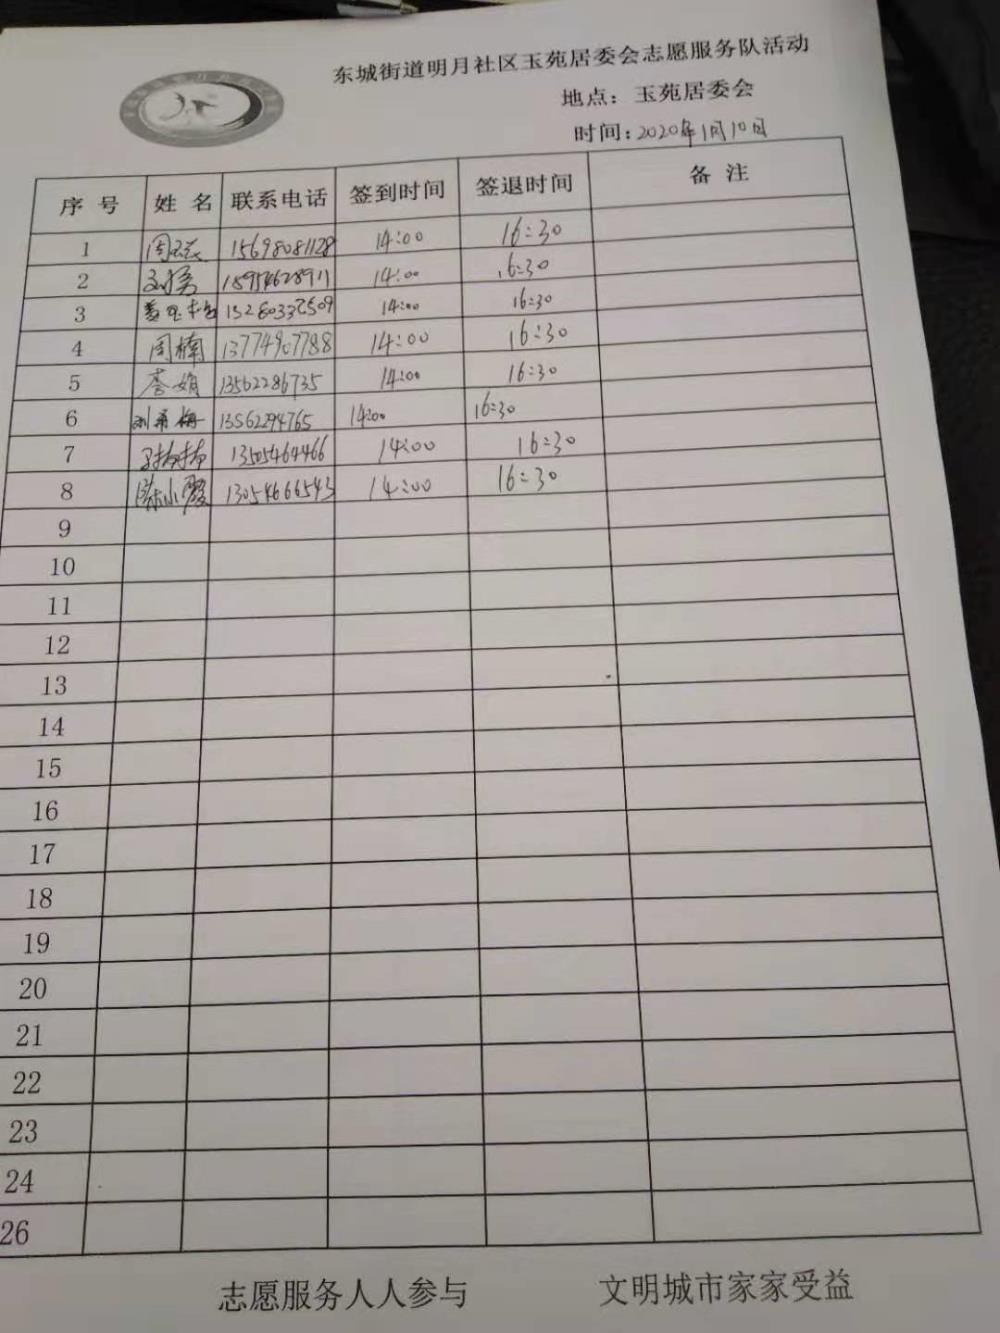 东城街道明月社区玉苑居委会志愿服务队活动
地点：玉苑居委会
时间：2020年1月10日
序号 姓名 联系电话 签到时间 签退时间 备注
1 15698081128 14:00 16:30
2 刘勇 18954628911 14:00 16:30
3 14:00 16:30
4 周楠 13774907788 14:00 16:30
5 李娟 13562286735 14:00 16:30
6 13562294765 14:00 16:30
7 孙楠楠 13505464466 14:00 16:30
8 陈小霞 13054666543 14:00 16:30
9
10
11
12
13
14
15
16
17
18
19
20
21
22
23
24
26
志愿服务人人参与 文明城市家家受益